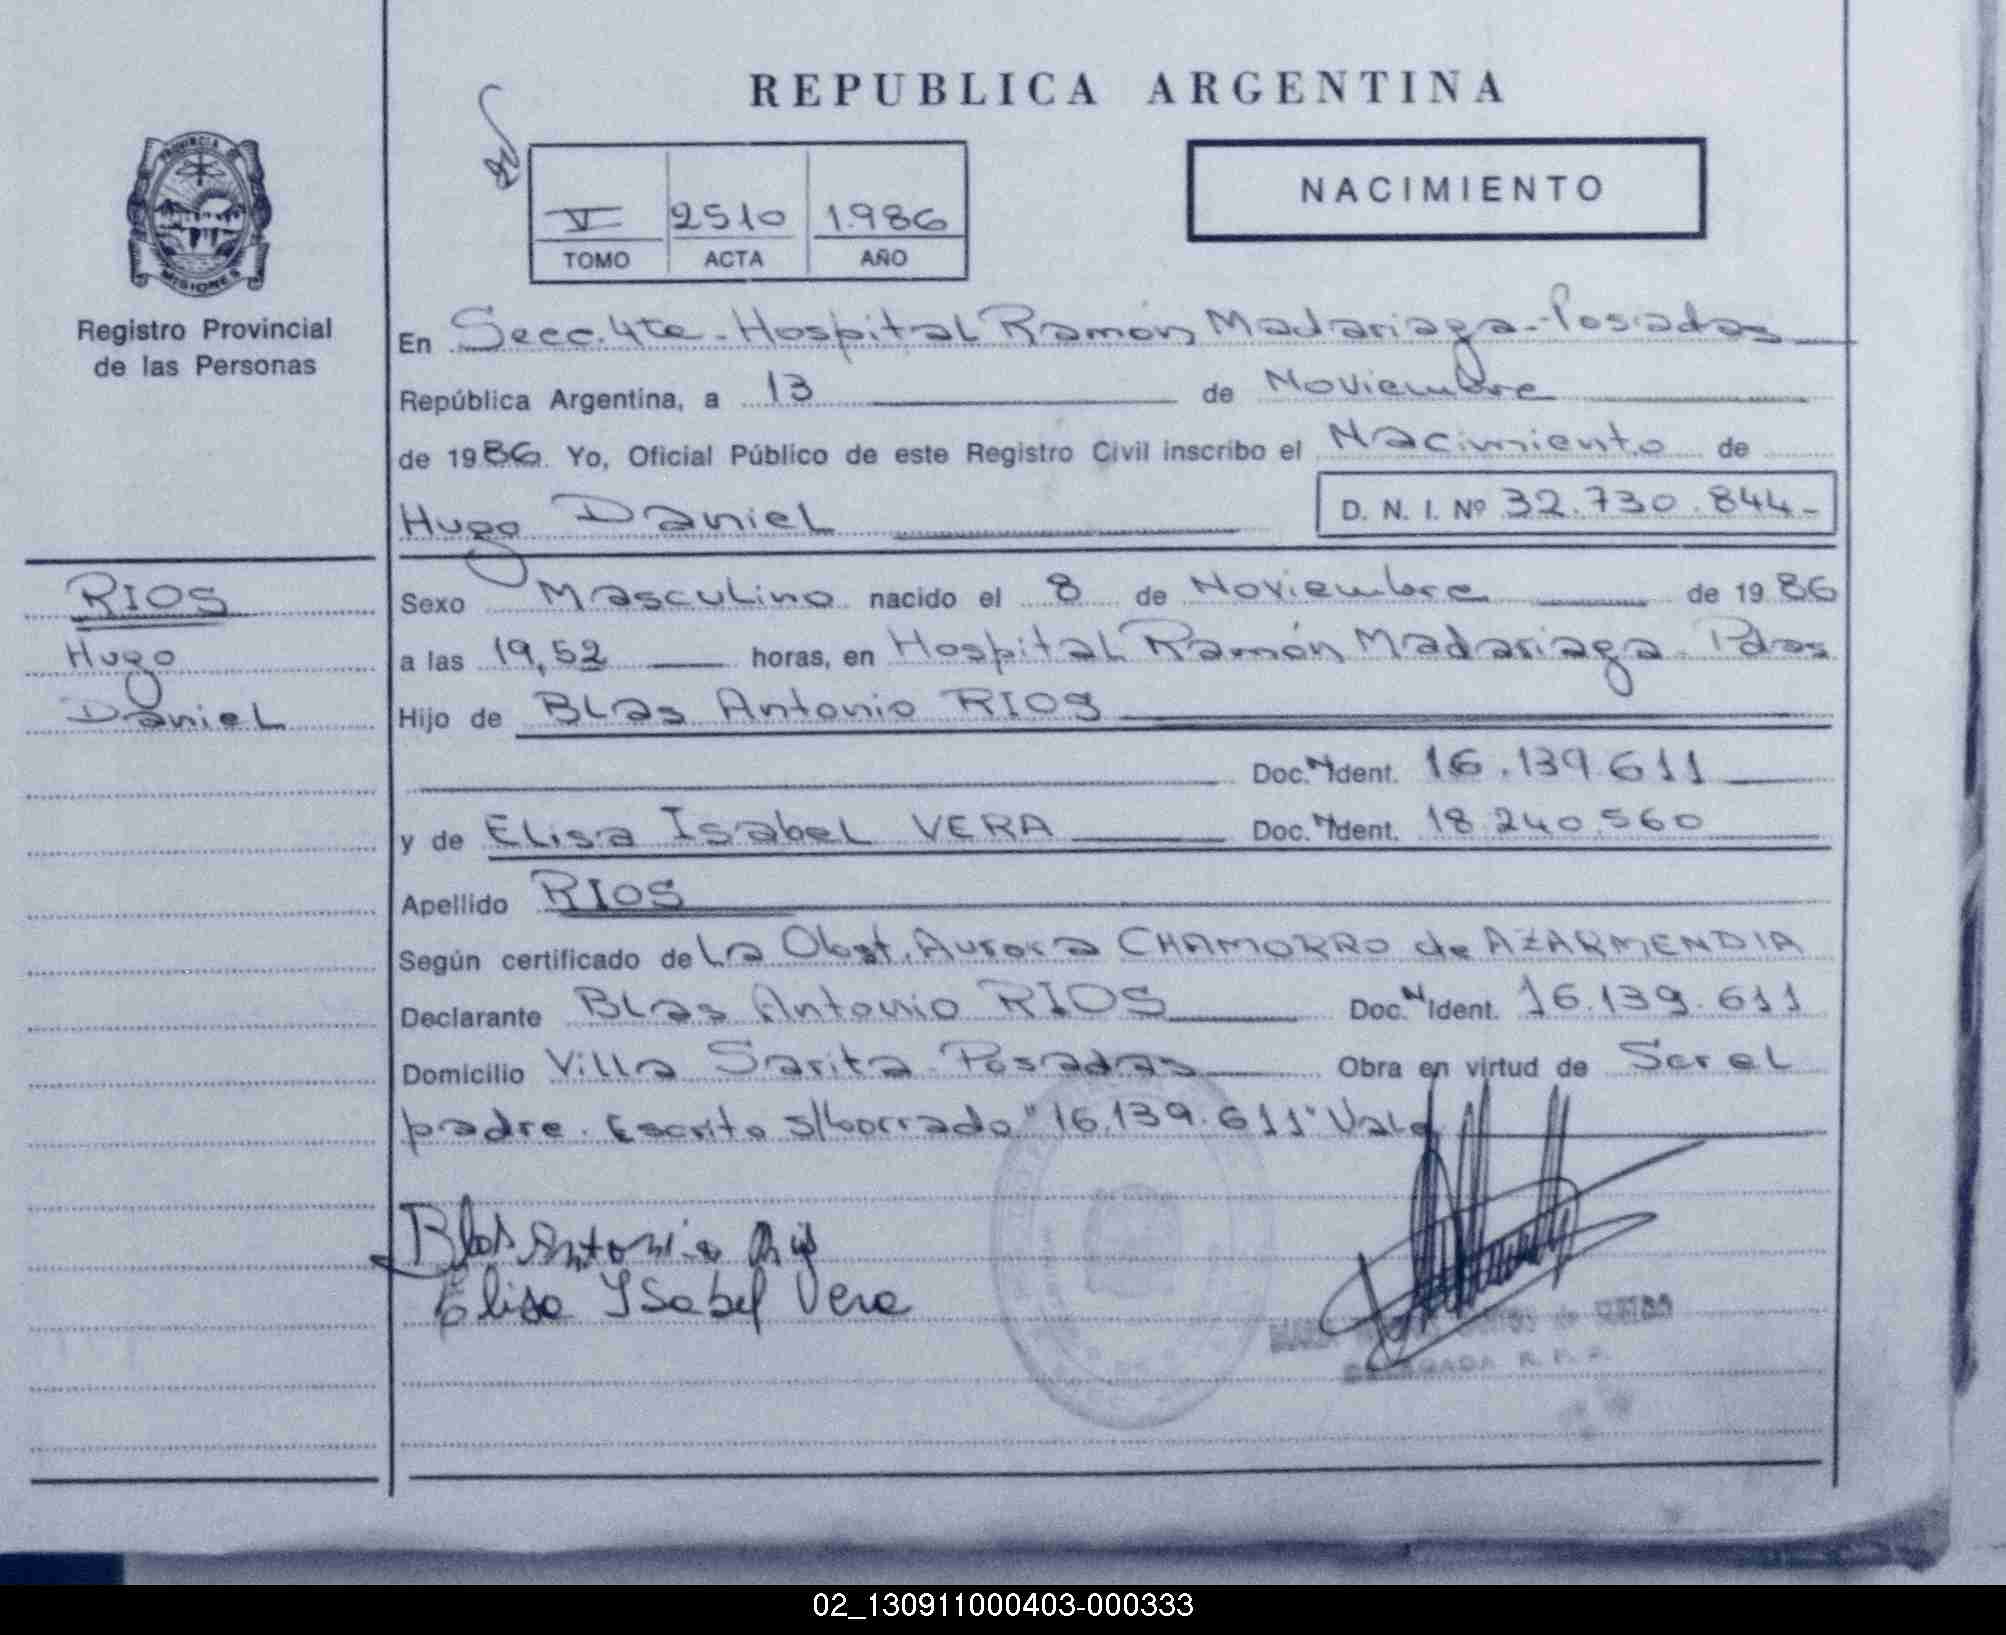 REPUBLICA ARGENTINA
PROVINCIA DE
MISIONES
Registro Provincial
de las Personas
V 2510 1.986
TOMO ACTA AÑO
NACIMIENTO
En Secc. 4te - Hospital Ramón Madariaga - Posadas
República Argentina, a 13 de Noviembre
de 1986. Yo, Oficial Público de este Registro Civil inscribo el Nacimiento de
Hugo Daniel D. N. I. Nº 32.730.844-
RIOS
Hugo
Daniel
Sexo Masculino nacido el 8 de Noviembre de 1986
a las 19,52 horas, en Hospital Ramón Madariaga - Pdas
Hijo de Blas Antonio RIOS
Doc. N Ident. 16.139.611
y de Elisa Isabel VERA Doc. N Ident. 18.240.560
Apellido RIOS
Según certificado de La Obst. Aurora CHAMORRO de AZARMENDIA
Declarante Blas Antonio RIOS Doc. N Ident. 16.139.611
Domicilio Villa Sarita - Posadas Obra en virtud de Ser el
padre. Escrito s/borrado "16.139.611" Vale
Blas Antonio Rios
Elisa Ysabel Vera
02_130911000403-000333